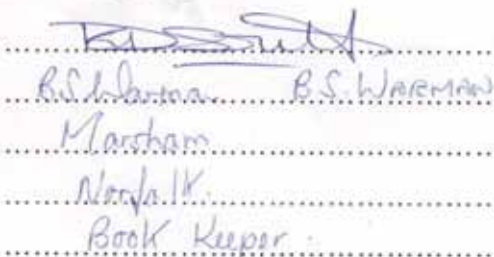 B.S. Warman B.S. WARMAN
Marsham
Norfolk.
Book Keeper.